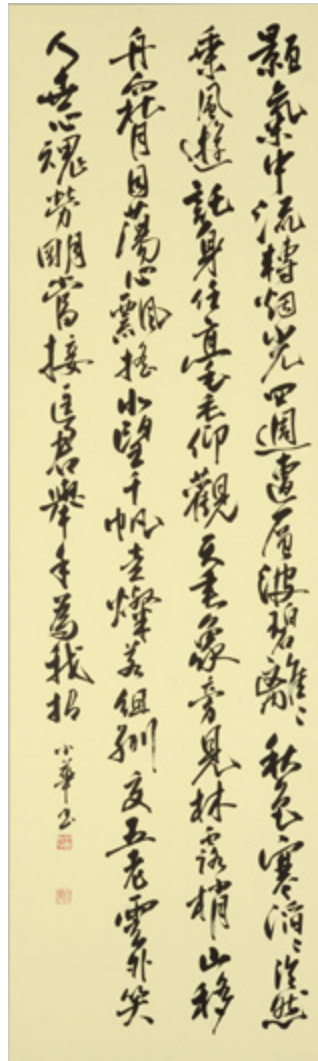 顥氣中流轉烟光四週遭層波碧離〻秋色寒滔〻然
乘風遊託身任毫毛仰觀天垂象旁見林露梢山移
舟背目蕩心飄搖水望千帆去燦若組紃交五老雲外笑
人世心魂勞明當接匡君舉手為我招
小華書